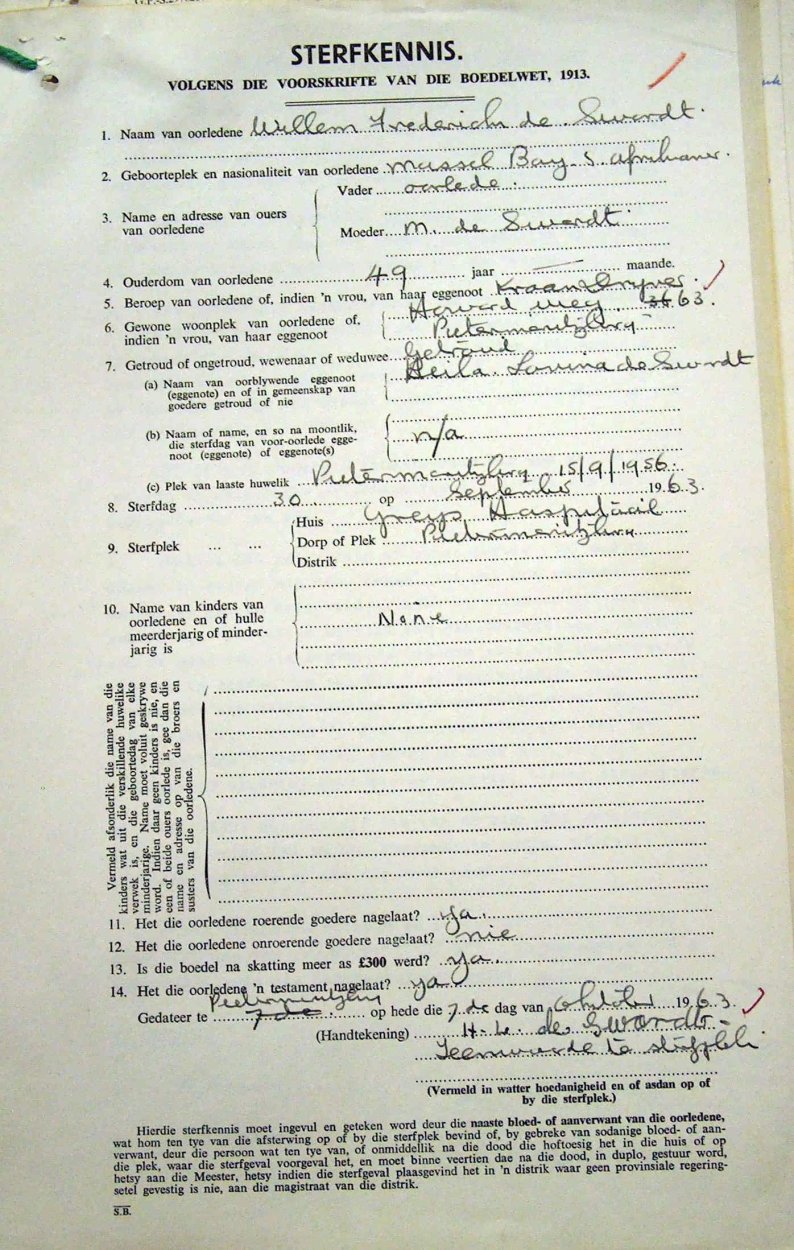 STERFKENNIS.
VOLGENS DIE VOORSKRIFTE VAN DIE BOEDELWET, 1913.
1. Naam van oorledene Willem Frederich de Swardt.
2. Geboorteplek en nasionaliteit van oorledene Mossel Bay. S. Afrikaner.
3. Name en adresse van ouers van oorledene
Vader oorlede.
Moeder M. de Swardt.
4. Ouderdom van oorledene 49 jaar — maande.
5. Beroep van oorledene of, indien 'n vrou, van haar eggenoot Kraandrywer.
6. Gewone woonplek van oorledene of, indien 'n vrou, van haar eggenoot
Howard weg. 63.
Pietermaritzburg
7. Getroud of ongetroud, wewenaar of weduwee Getroud
(a) Naam van oorblywende eggenoot
(eggenote) en of in gemeenskap van
goedere getroud of nie
Heila Lovina de Swardt
(b) Naam of name, en so na moontlik,
die sterfdag van voor-oorlede egge-
noot (eggenote) of eggenote(s)
n/a
(c) Plek van laaste huwelik Pietermaritzburg 15/9/1956.
8. Sterfdag 30 op September 1963.
9. Sterfplek ... ...
Huis Greys Hospitaal
Dorp of Plek Pietermaritzburg
Distrik
10. Name van kinders van
oorledene en of hulle
meerderjarig of minder-
jarig is
None
Vermeld afsonderlik die name van die
kinders wat uit die verskillende huwelike
verwek is, en die geboortedag van elke
minderjarige. Name moet voluit geskrywe
word. Indien daar geen kinders is nie, en
een of beide ouers oorlede is, gee dan die
name en adresse op van die broers en
susters van die oorledene.
11. Het die oorledene roerende goedere nagelaat? ya.
12. Het die oorledene onroerende goedere nagelaat? nie
13. Is die boedel na skatting meer as £300 werd? ya.
14. Het die oorledene 'n testament nagelaat? ya
Pietermaritzburg
Gedateer te 7de op hede die 7de dag van Oktober 1963.
(Handtekening) H. L. de Swardt
Teenwoordig te sterfplek.
(Vermeld in watter hoedanigheid en of asdan op of
by die sterfplek.)
Hierdie sterfkennis moet ingevul en geteken word deur die naaste bloed- of aanverwant van die oorledene,
wat hom ten tye van die afsterwing op of by die sterfplek bevind of, by gebreke van sodanige bloed- of aan-
verwant, deur die persoon wat ten tye van, of onmiddellik na die dood die hoftoesig het in die huis of op
die plek, waar die sterfgeval voorgeval het, en moet binne veertien dae na die dood, in duplo, gestuur word,
hetsy aan die Meester, hetsy indien die sterfgeval plaasgevind het in 'n distrik waar geen provinsiale regering-
setel gevestig is nie, aan die magistraat van die distrik.
S.B.